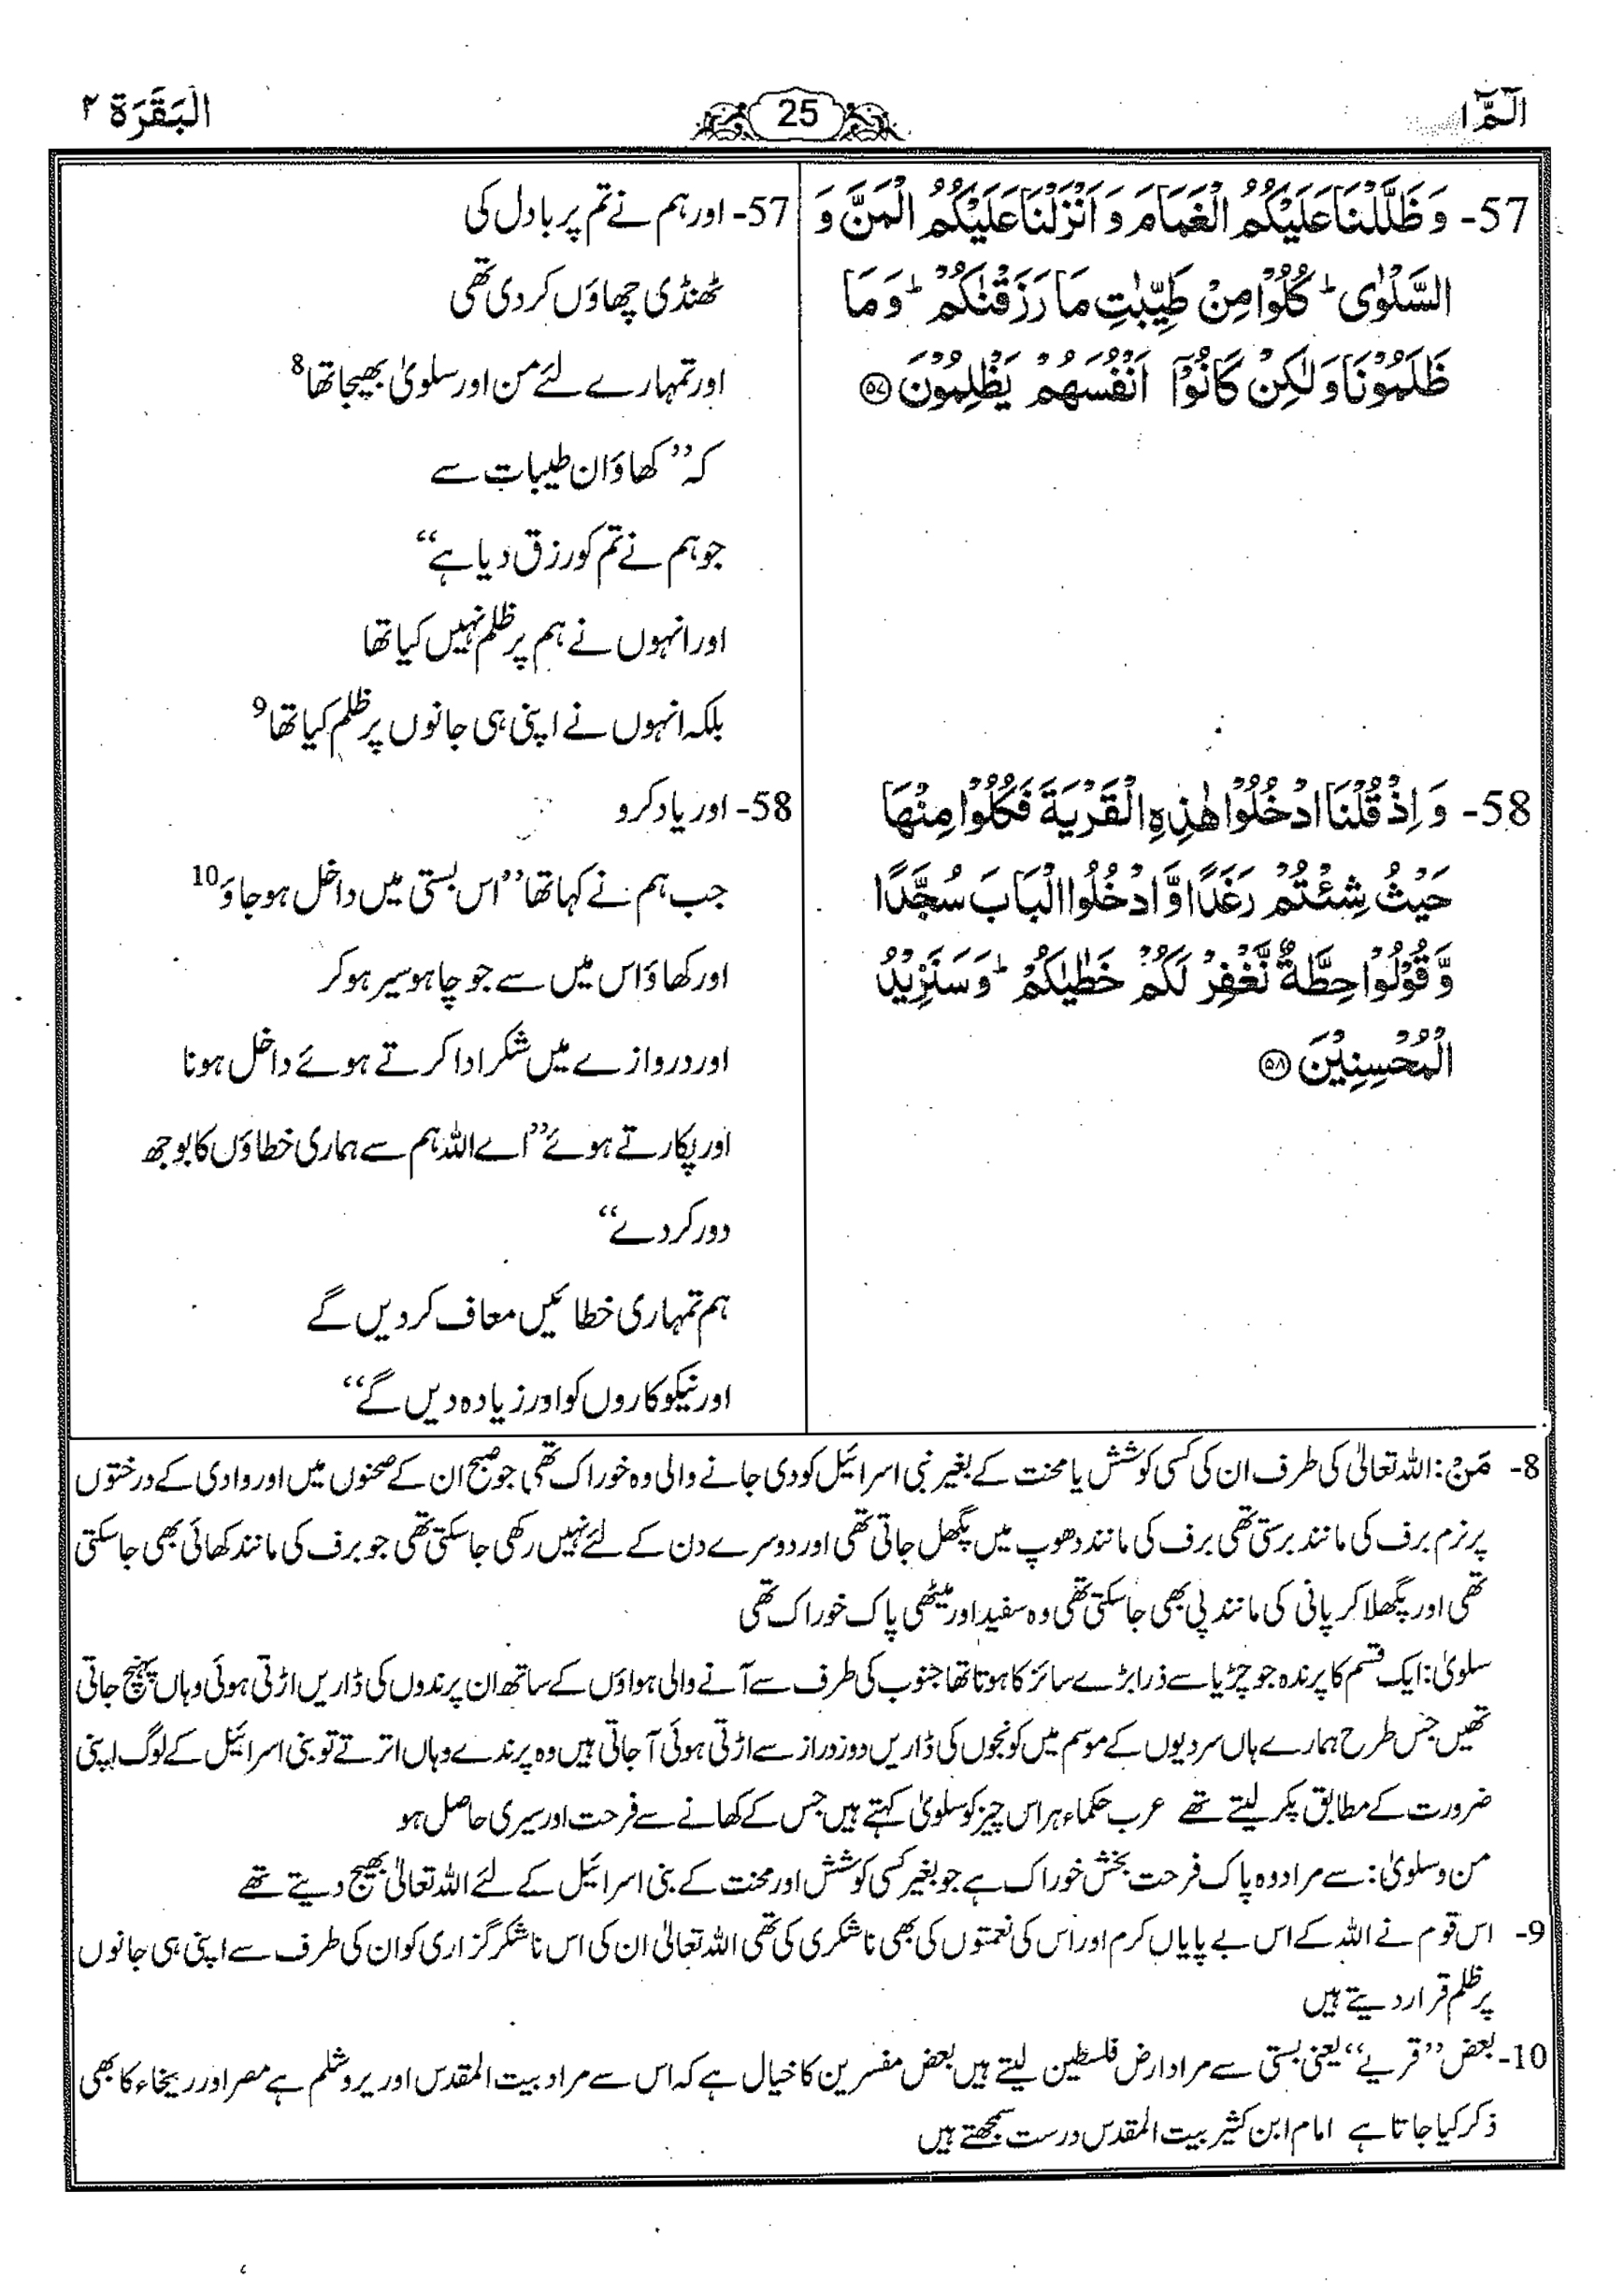 الٓمّٓ ۱
25
الْبَقَرَة ۲
57- وَ ظَلَّلْنَا عَلَيْكُمُ الْغَمَامَ وَ اَنْزَلْنَا عَلَيْكُمُ الْمَنَّ وَ
السَّلْوٰى ؕ كُلُوْا مِنْ طَيِّبٰتِ مَا رَزَقْنٰكُمْ ؕ وَ مَا
ظَلَمُوْنَا وَ لٰكِنْ كَانُوْۤا اَنْفُسَهُمْ يَظْلِمُوْنَ ﴿۵۷﴾
57- اور ہم نے تم پر بادل کی
ٹھنڈی چھاؤں کر دی تھی
اور تمہارے لئے من اور سلویٰ بھیجا تھا 8
کہ ’’کھاؤ ان طیبات سے
جو ہم نے تم کو رزق دیا ہے‘‘
اور انہوں نے ہم پر ظلم نہیں کیا تھا
بلکہ انہوں نے اپنی ہی جانوں پر ظلم کیا تھا 9
58- وَ اِذْ قُلْنَا ادْخُلُوْا هٰذِهِ الْقَرْيَةَ فَكُلُوْا مِنْهَا
حَيْثُ شِئْتُمْ رَغَدًا وَّ ادْخُلُوا الْبَابَ سُجَّدًا
وَّ قُوْلُوْا حِطَّةٌ نَّغْفِرْ لَكُمْ خَطٰيٰكُمْ ؕ وَ سَنَزِيْدُ
الْمُحْسِنِيْنَ ﴿۵۸﴾
58- اور یاد کرو
جب ہم نے کہا تھا ’’اس بستی میں داخل ہو جاؤ 10
اور کھاؤ اس میں سے جو چاہو سیر ہو کر
اور دروازے میں شکر ادا کرتے ہوئے داخل ہونا
اور پکارتے ہوئے ’’اے اللہ ہم سے ہماری خطاؤں کا بوجھ
دور کر دے‘‘
ہم تمہاری خطائیں معاف کر دیں گے
اور نیکوکاروں کو اور زیادہ دیں گے‘‘
8- مَنْ: اللہ تعالیٰ کی طرف ان کی کسی کوشش یا محنت کے بغیر نبی اسرائیل کو دی جانے والی وہ خوراک تھی جو صبح ان کے صحنوں میں اور وادی کے درختوں
پر نرم برف کی مانند برستی تھی برف کی مانند دھوپ میں پگھل جاتی تھی اور دوسرے دن کے لئے نہیں رکھی جا سکتی تھی جو برف کی مانند کھائی بھی جا سکتی
تھی اور پگھلا کر پانی کی مانند پی بھی جا سکتی تھی وہ سفید اور میٹھی پاک خوراک تھی
سلویٰ: ایک قسم کا پرندہ جو چڑیا سے ذرا بڑے سائز کا ہوتا تھا جنوب کی طرف سے آنے والی ہواؤں کے ساتھ ان پرندوں کی ڈاریں اڑتی ہوئی وہاں پہنچ جاتی
تھیں جس طرح ہمارے ہاں سردیوں کے موسم میں کونجوں کی ڈاریں دور دراز سے اڑتی ہوئی آ جاتی ہیں وہ پرندے وہاں اترتے تو بنی اسرائیل کے لوگ اپنی
ضرورت کے مطابق پکڑ لیتے تھے عرب حکماء ہر اس چیز کو سلویٰ کہتے ہیں جس کے کھانے سے فرحت اور سیری حاصل ہو
من و سلویٰ: سے مراد وہ پاک فرحت بخش خوراک ہے جو بغیر کسی کوشش اور محنت کے بنی اسرائیل کے لئے اللہ تعالیٰ بھیج دیتے تھے
9- اس قوم نے اللہ کے اس بے پایاں کرم اور اس کی نعمتوں کی بھی ناشکری کی تھی اللہ تعالیٰ ان کی اس ناشکر گزاری کو ان کی طرف سے اپنی ہی جانوں
پر ظلم قرار دیتے ہیں
10- بعض ’’قریے‘‘ یعنی بستی سے مراد ارض فلسطین لیتے ہیں بعض مفسرین کا خیال ہے کہ اس سے مراد بیت المقدس اور یروشلم ہے مصر اور ریحاء کا بھی
ذکر کیا جاتا ہے امام ابن کثیر بیت المقدس درست سمجھتے ہیں